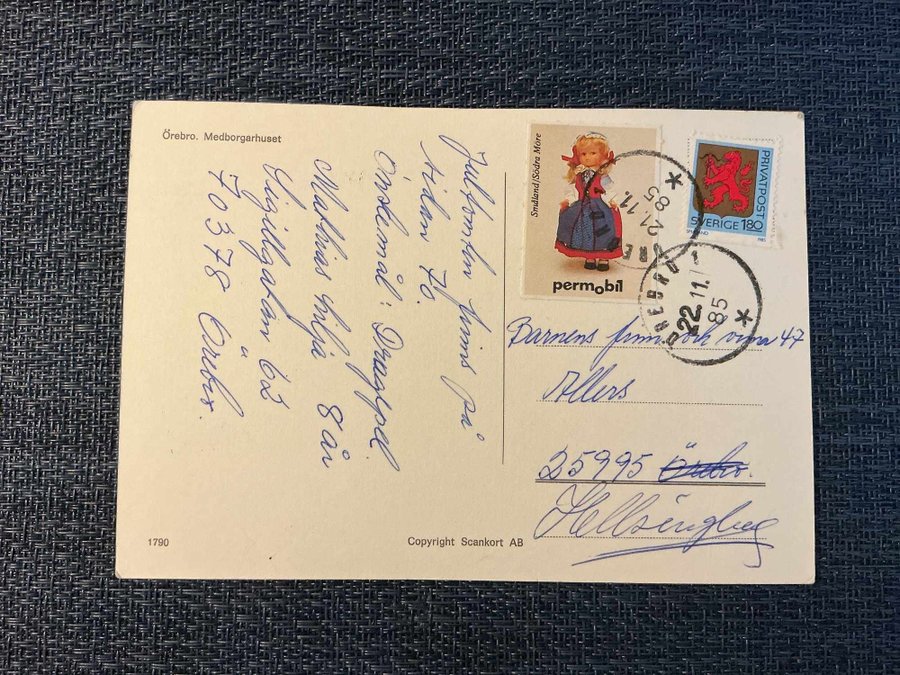 Örebro. Medborgarhuset
Jultomten finns på
sidan 70.
Önskemål: Dragspel.
Mathias 8 år
Sigillgatan 63
70378 Örebro.
Småland/Södra Möre
permobil
PRIVATPOST
SVERIGE 180
21.11.
85
ÖREBRO 1
22.11.
85
Barnens finn och vinn 47
Allers
25995 Örebro.
Hellsingborg
1790
Copyright Scankort AB